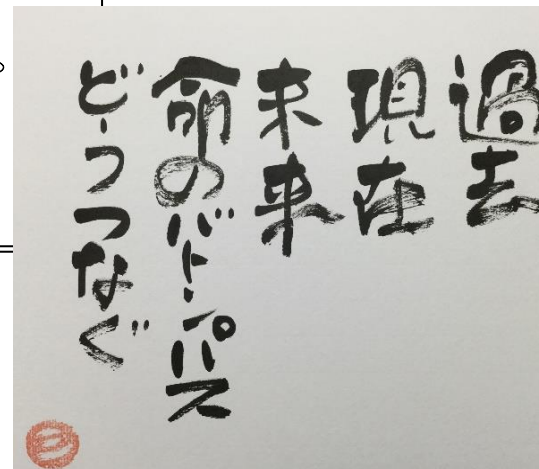 過去
現在
未来
命のバトンパス
どうつなぐ